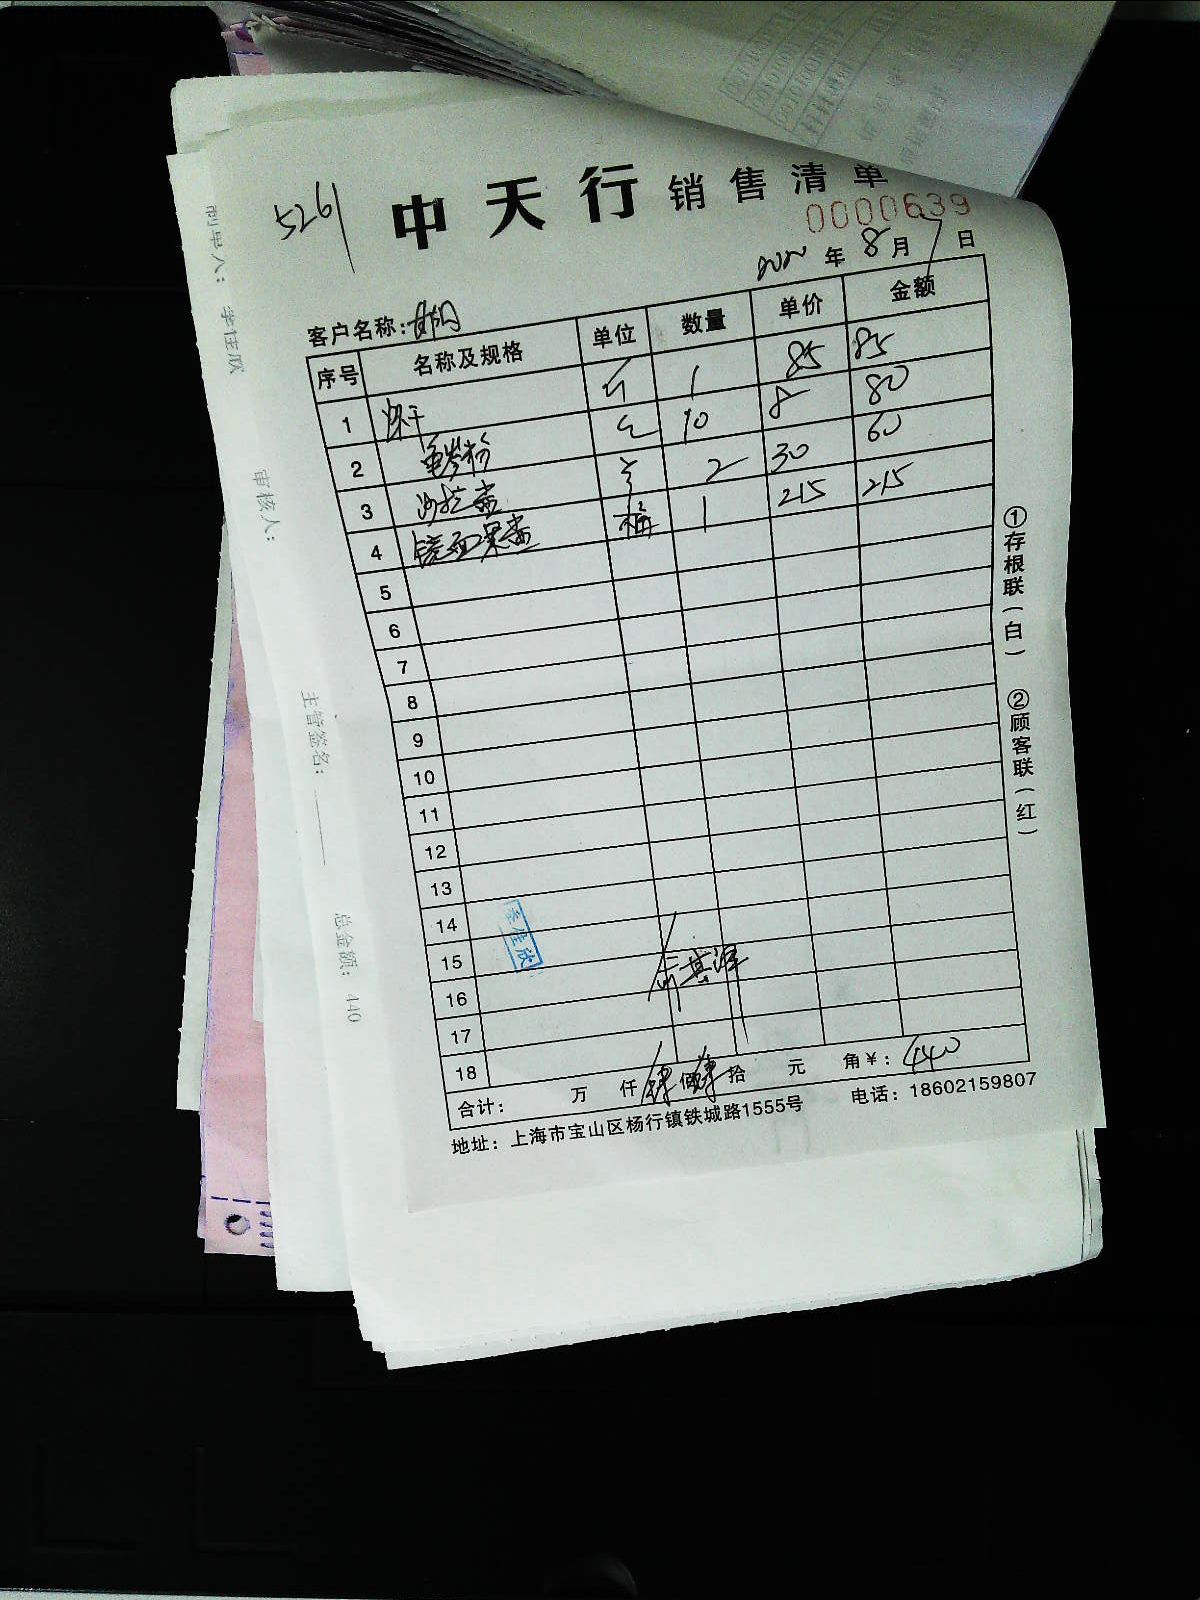 5261
中天行 销售清单
0000639
2020年8月7日
客户名称：
序号 名称及规格 单位 数量 单价 金额
1 烘干 1 85 85
2 包 10 8 80
3 沙拉酱 2 30 60
4 镜面果膏 桶 1 215 215
5
6
7
8
9
10
11
12
13
14
15
16
17
18
合计： 万 仟 肆佰肆拾 元 角¥：440
地址：上海市宝山区杨行镇铁城路1555号 电话：18602159807
①存根联（白） ②顾客联（红）
李佳欣
制单人：李佳欣
审核人：
主管签名：
总金额：440